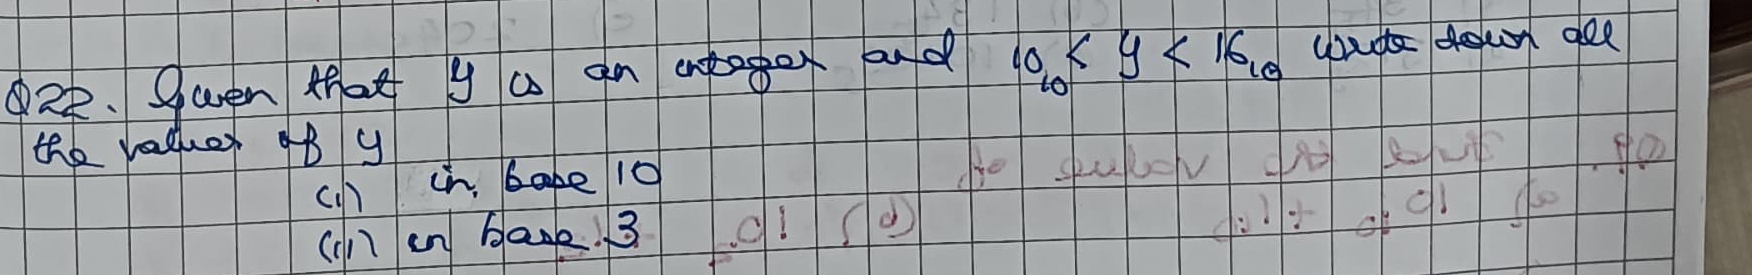 Q22. Given that y is an integer and 10₁₀ < y < 16₁₀ write down all
the values of y
(i) in base 10
(ii) in base 3